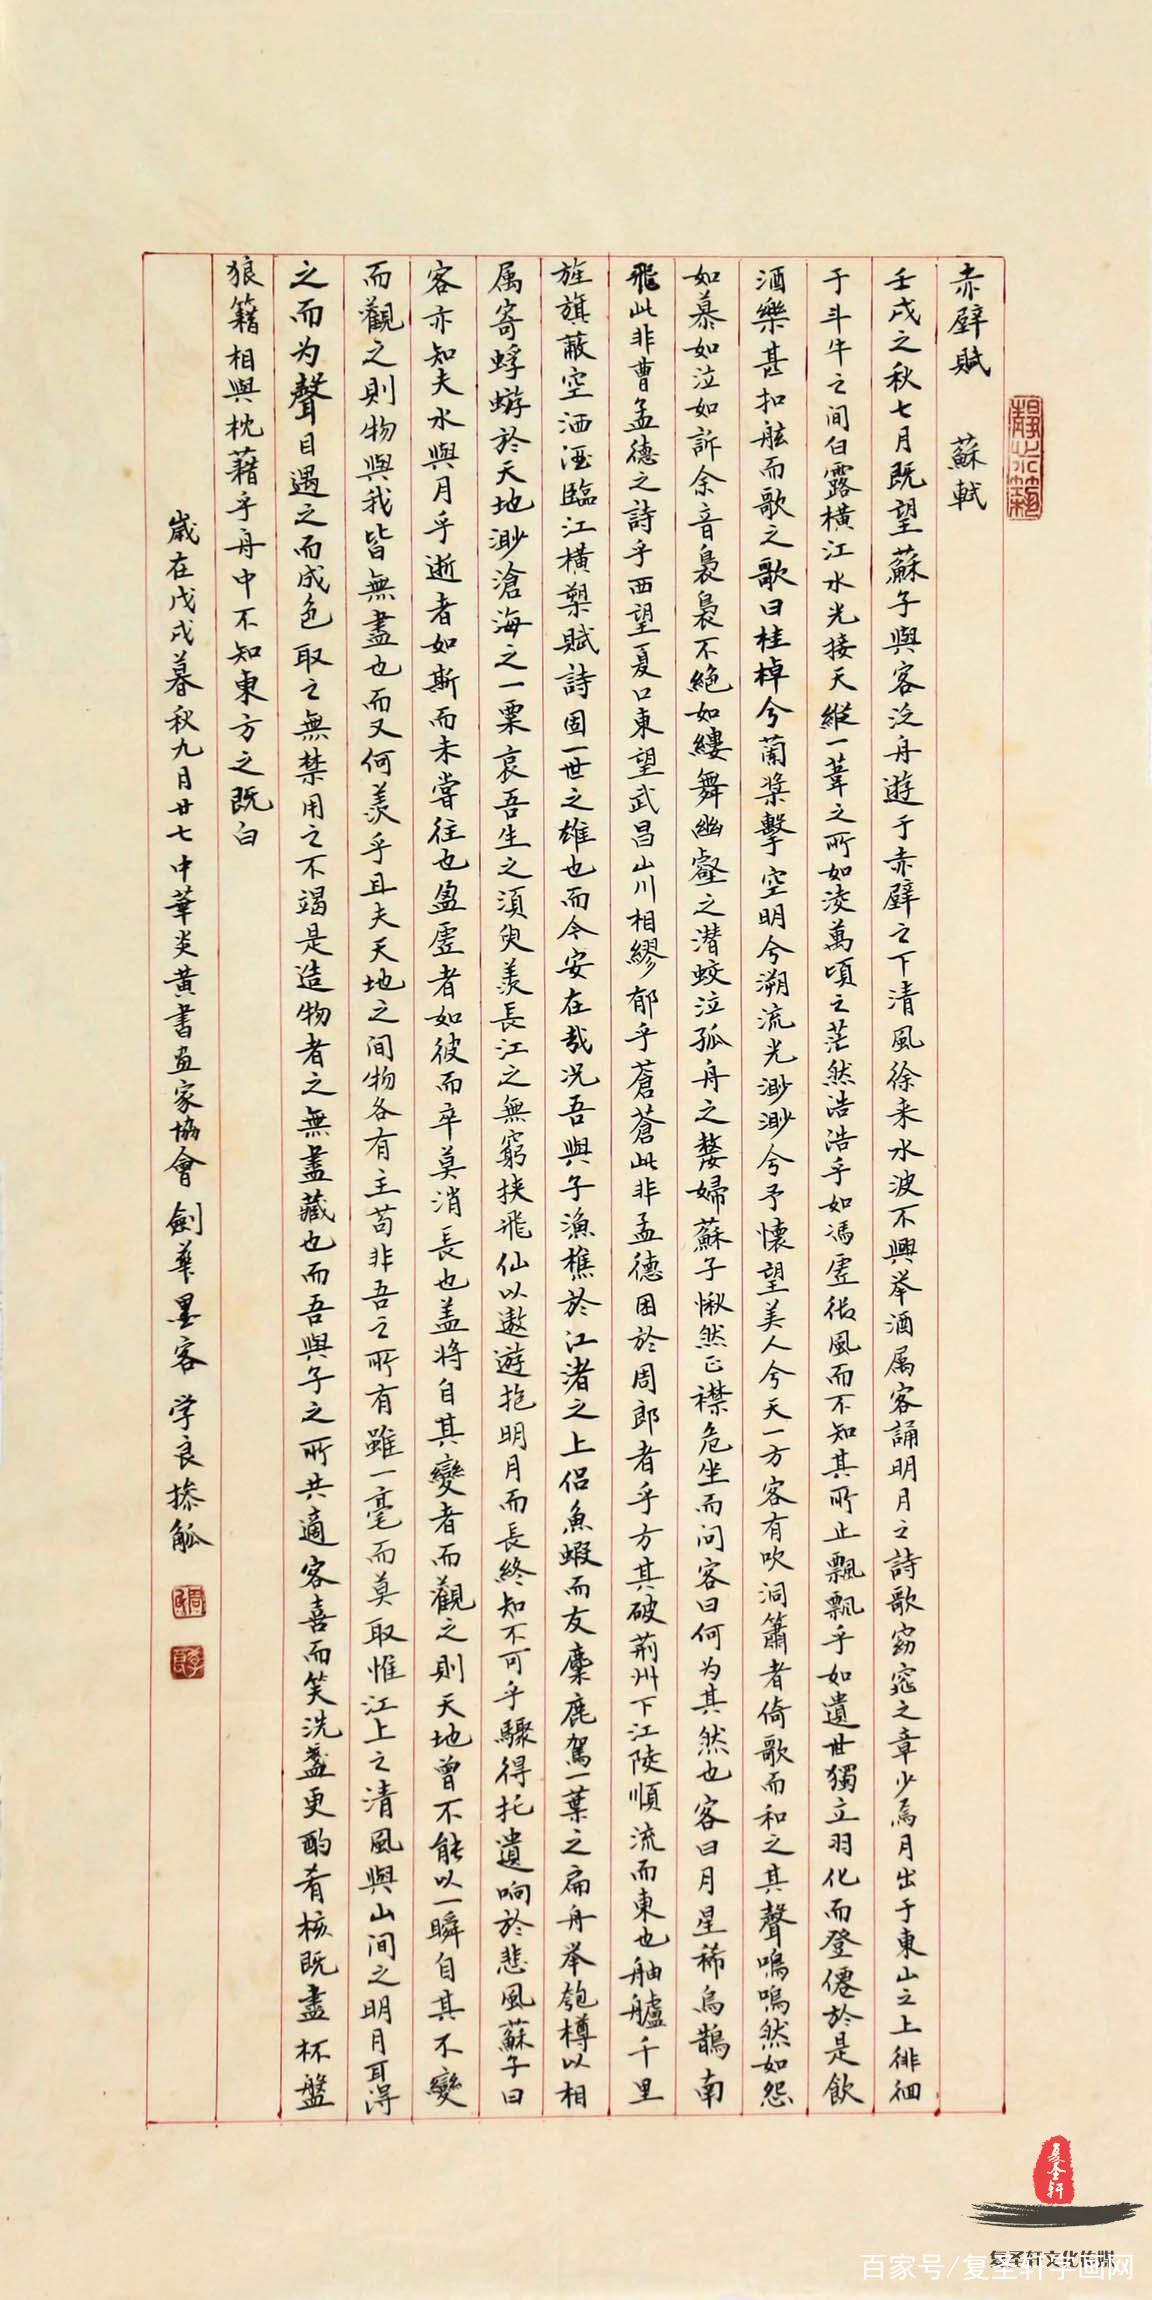 赤壁賦 蘇軾
壬戌之秋七月既望蘇子與客泛舟遊于赤壁之下清風徐来水波不興举酒属客誦明月之詩歌窈窕之章少焉月出于東山之上徘徊
于斗牛之间白露橫江水光接天縱一葦之所如淩萬頃之茫然浩浩乎如馮虛御風而不知其所止飄飄乎如遺世獨立羽化而登僊於是飲
酒樂甚扣舷而歌之歌曰桂棹兮蘭槳擊空明兮溯流光渺渺兮予懷望美人兮天一方客有吹洞簫者倚歌而和之其聲嗚嗚然如怨
如慕如泣如訴余音裊裊不絕如縷舞幽壑之潜蛟泣孤舟之嫠婦蘇子愀然正襟危坐而问客曰何为其然也客曰月星稀烏鵲南
飛此非曹孟德之詩乎西望夏口東望武昌山川相繆郁乎蒼蒼此非孟德困於周郎者乎方其破荊州下江陵順流而東也舳艫千里
旌旗蔽空洒酒臨江橫槊賦詩固一世之雄也而今安在哉况吾與子漁樵於江渚之上侣魚蝦而友麋鹿駕一葉之扁舟举匏樽以相
属寄蜉蝣於天地渺滄海之一粟哀吾生之須臾羨長江之無窮挟飛仙以遨遊抱明月而長終知不可乎驟得托遺响於悲風蘇子曰
客亦知夫水與月乎逝者如斯而未嘗往也盈虛者如彼而卒莫消長也盖将自其變者而觀之則天地曾不能以一瞬自其不變
而觀之則物與我皆無盡也而又何羨乎且夫天地之间物各有主苟非吾之所有雖一毫而莫取惟江上之清風與山间之明月耳得
之而为聲目遇之而成色取之無禁用之不竭是造物者之無盡藏也而吾與子之所共適客喜而笑洗盞更酌肴核既盡杯盤
狼籍相與枕藉乎舟中不知東方之既白
歲在戊戌暮秋九月廿七中華炎黃書画家協會 劍華墨客 学良摻觚
复圣轩
复圣轩文化传媒
百家号/复圣轩字画网